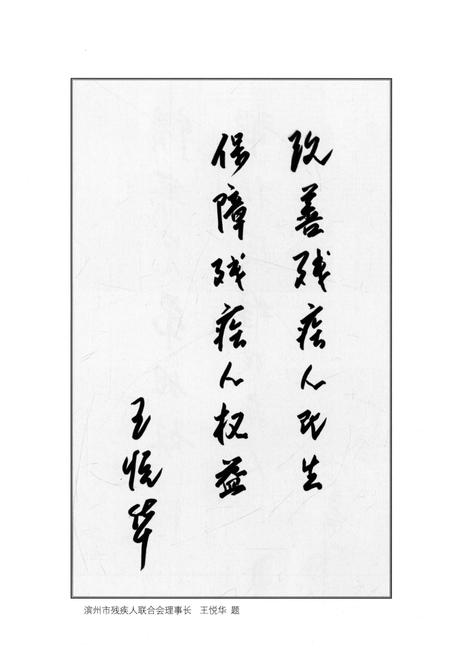 改善残疾人民生
保障残疾人权益
王悦华
滨州市残疾人联合会理事长　王悦华 题